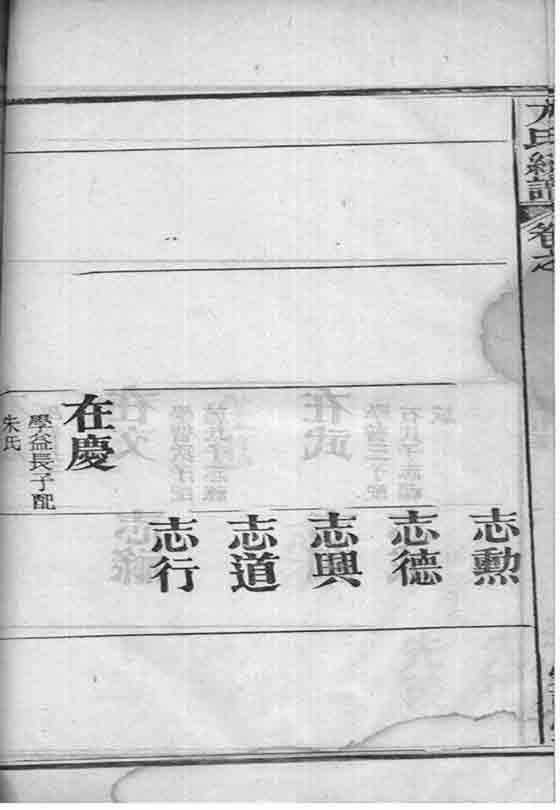 方氏經譜 卷之
志勳
志德
志興
志道
志行
在慶
學益長子配
朱氏